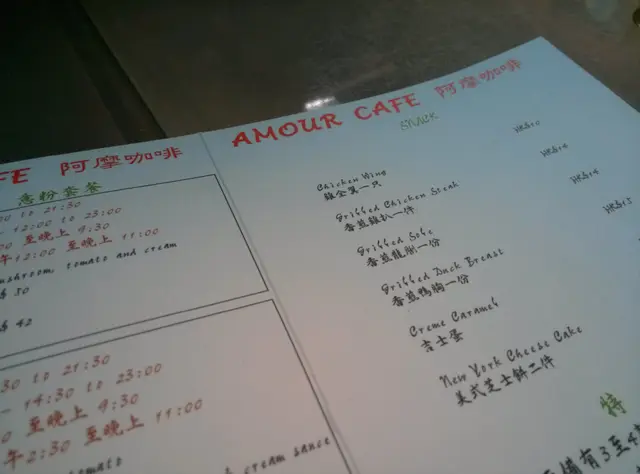 FE 阿摩咖啡
意粉套餐
00 to 21:30
12:00 to 23:00
00 至晚上 9:30
午12:00 至晚上 11:00
tomato and cream
$ 30
$ 42
30 to 21:30
- 14:30 to 23:00
至晚上 9:30
午2:30 至晚上 11:00
tomato
cream sauce
AMOUR CAFE 阿摩咖啡
Snack
Chicken Wing
雞全翼一只
Grilled Chicken Steak
香煎雞扒一件
Grilled Sole
香煎龍脷一份
Grilled Duck Breast
香煎鴨胸一份
Creme Caramel
吉士蛋
New York Cheese Cake
美式芝士餅二件
特
備有3至4